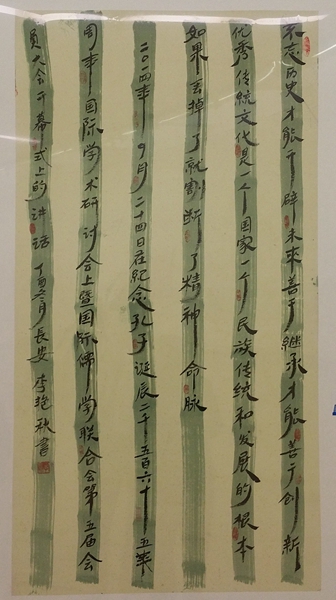 不忘历史才能开辟未来善于继承才能善于创新
优秀传统文化是一个国家一个民族传统和发展的根本
如果丢掉了就割断了精神命脉
二〇一四年9月二十四日在纪念孔子诞辰二千五百六十五年
周年国际学术研讨会上暨国际儒学联合会第五届会
员大会开幕式上的讲话 丁酉 月长安李艳秋书